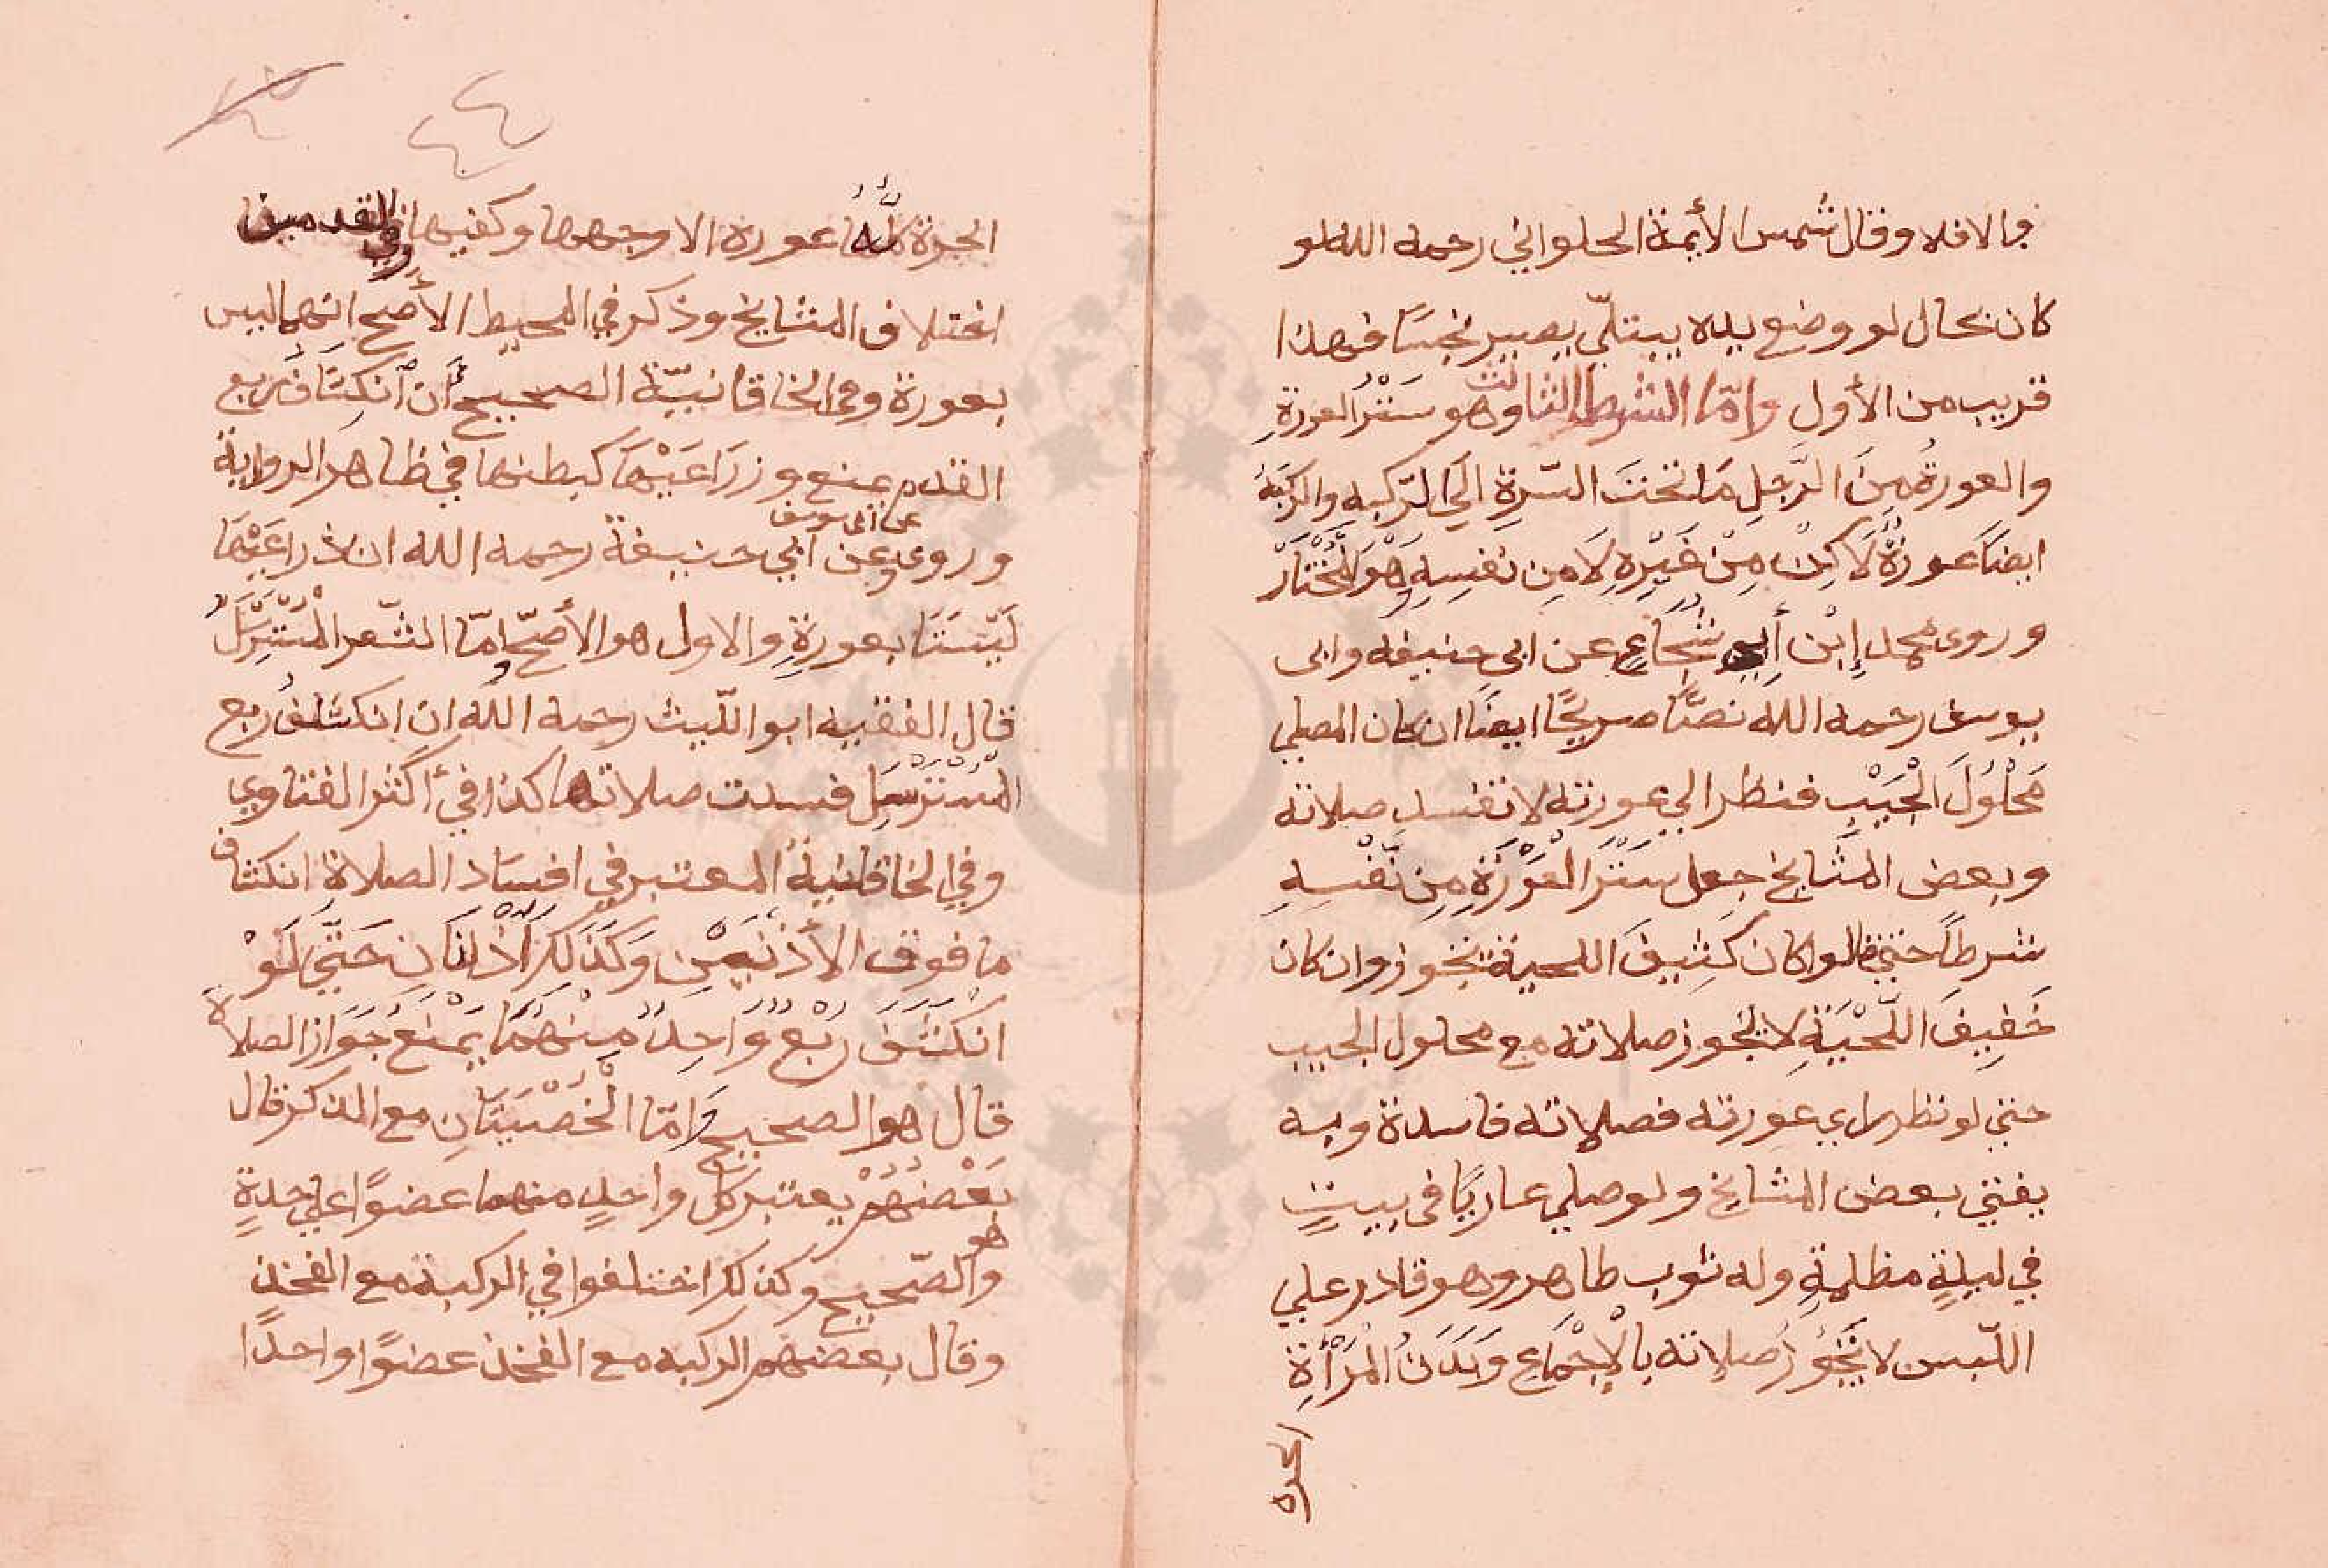 والا فلا وقال شمس الأيمة الحلواني رحمه الله لو
كان بحال لو وضع يده يبتلّ يصير نجسًا فهذا
قريب من الأول وامّا الشرط الثالث وهو سَتْرُ العورةِ
والعورةُ مِنَ الرَّجلِ مَا تحتَ السّرةِ الي الرّكبه والركبَةُ
ايضًا عورةٌ لَاكِنْ مِنْ غَيْرِهِ لَا مِن نفسِهِ هُوَ الْمُخْتَار
وروى محمد إبْن أبِي شُجَاعٍ عن ابي حنيفه وابى
يوسف رحمه الله نصًّا صريحًا ايضًا ان كان المصلي
مَحْلُولَ الْجَيْبِ فنظر الي عورته لا تفسد صلاته
وبعض المشَايخ جعل سَتْرَ الْعَوْرَةِ مِن نَفْسِهِ
شرطًا حتي قالوا كان كَثِيفَ اللحية تجوز وان كان
خَفِيفَ اللّحْيَةِ لا تجوز صلاته مع محلول الجيب
حتي لو نظر راي عورته فصلاته فاسدة وبه
يفتي بعض المشايخ ولو صلي عاريًا فى بيتٍ
في ليلةٍ مظلمةِ وله ثوب طاهر وهو قادر علي
اللّبس لا تَجُوزُ صلاته بالْإجْمَاعِ وَبَدَنُ الْمَرْأةِ
الحره
٤٤
الحرة كلُّهَا عورة الا وجهها وكفيها وفي القدمين
اختلاف المشايخ وذكر في المحيط الأصح انهما ليس
بعورة وفي الخاقانيّة الصحيح أن انكشَافَ ربع
القدم يمنع وزرَاعَيْهَا كبطنها في ظاهر الرواية
وروى عن ابى يوسف وعن أبي حنيفة رحمه الله ان ذراعَيْهَا
لَيْسَتَا بعورةٍ والاول هو الأصحّ وامّا الشّعر الْمُسْتَرْسَلُ
قال الفقيه ابو اللّيث رحمه الله ان انكشف رُبع
المُسْتَرْسِل فسدت صلاتها كذا في أكثر الفتاوي
وفي الخاقانية المعتبر في افسَاد الصلاة انكشاف
ما فوق الأذنَيْن وَكَذَلكَ الأذنَانِ حَتَّي لَوْ
انْكَشَفَ رُبْعُ وَاحِدٌ مِنْهُمَا يَمْنَعُ جَوَاز الصلاة
قال هو الصحيح وَامّا الْخُصْيَتَانِ مع الذكر قال
بَعْضُهُمْ يعتبر كلُّ واحدٍ منهما عضوًا علي حدةٍ
وهو الصّحيح وكذلك اختلفوا في الركبة مع الفخذ
وقال بعضهم الركبه مع الفخذ عضوًا واحدًا